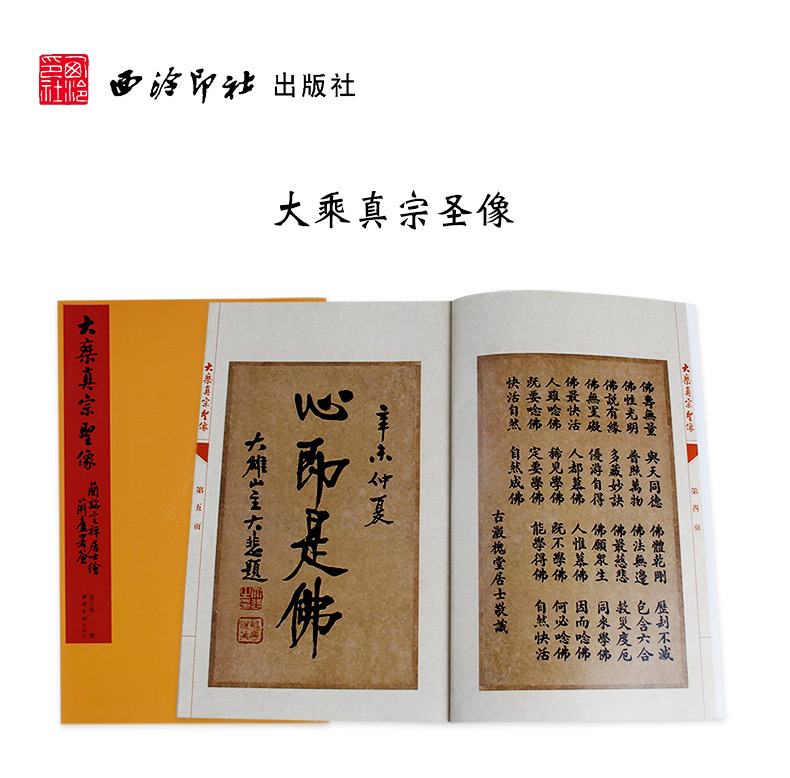 西泠印社
西泠印社 出版社
大乘真宗圣像
大乘真宗聖像
大乘真宗聖像
第四頁
佛壽無量 與天同德 佛體乾剛 歷劫不滅
佛性光明 普照萬物 佛法無邊 包含六合
佛說有緣 多藏妙訣 佛最慈悲 救災度厄
佛無罣礙 優游自得 佛願眾生 同來學佛
佛最快活 人都慕佛 人惟慕佛 因而唸佛
人雖唸佛 稀見學佛 既不學佛 何必唸佛
既要唸佛 定要學佛 能學得佛 自然快活
快活自然 自然成佛
古瀫槐堂居士敬識
辛未仲夏
心即是佛
大雄山主大悲題
大乘真宗聖像
第五頁